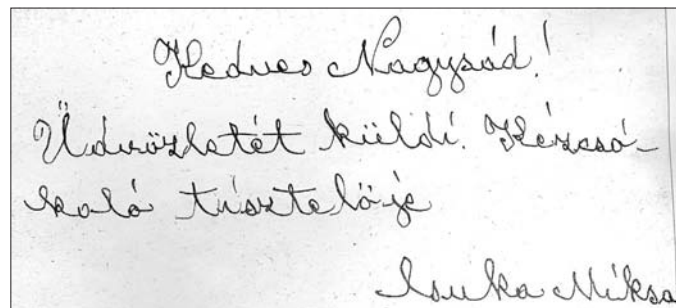 Kedves Nagysád!
Üdvözletét küldi. Kézcsó-
koló tisztelője
Miksa